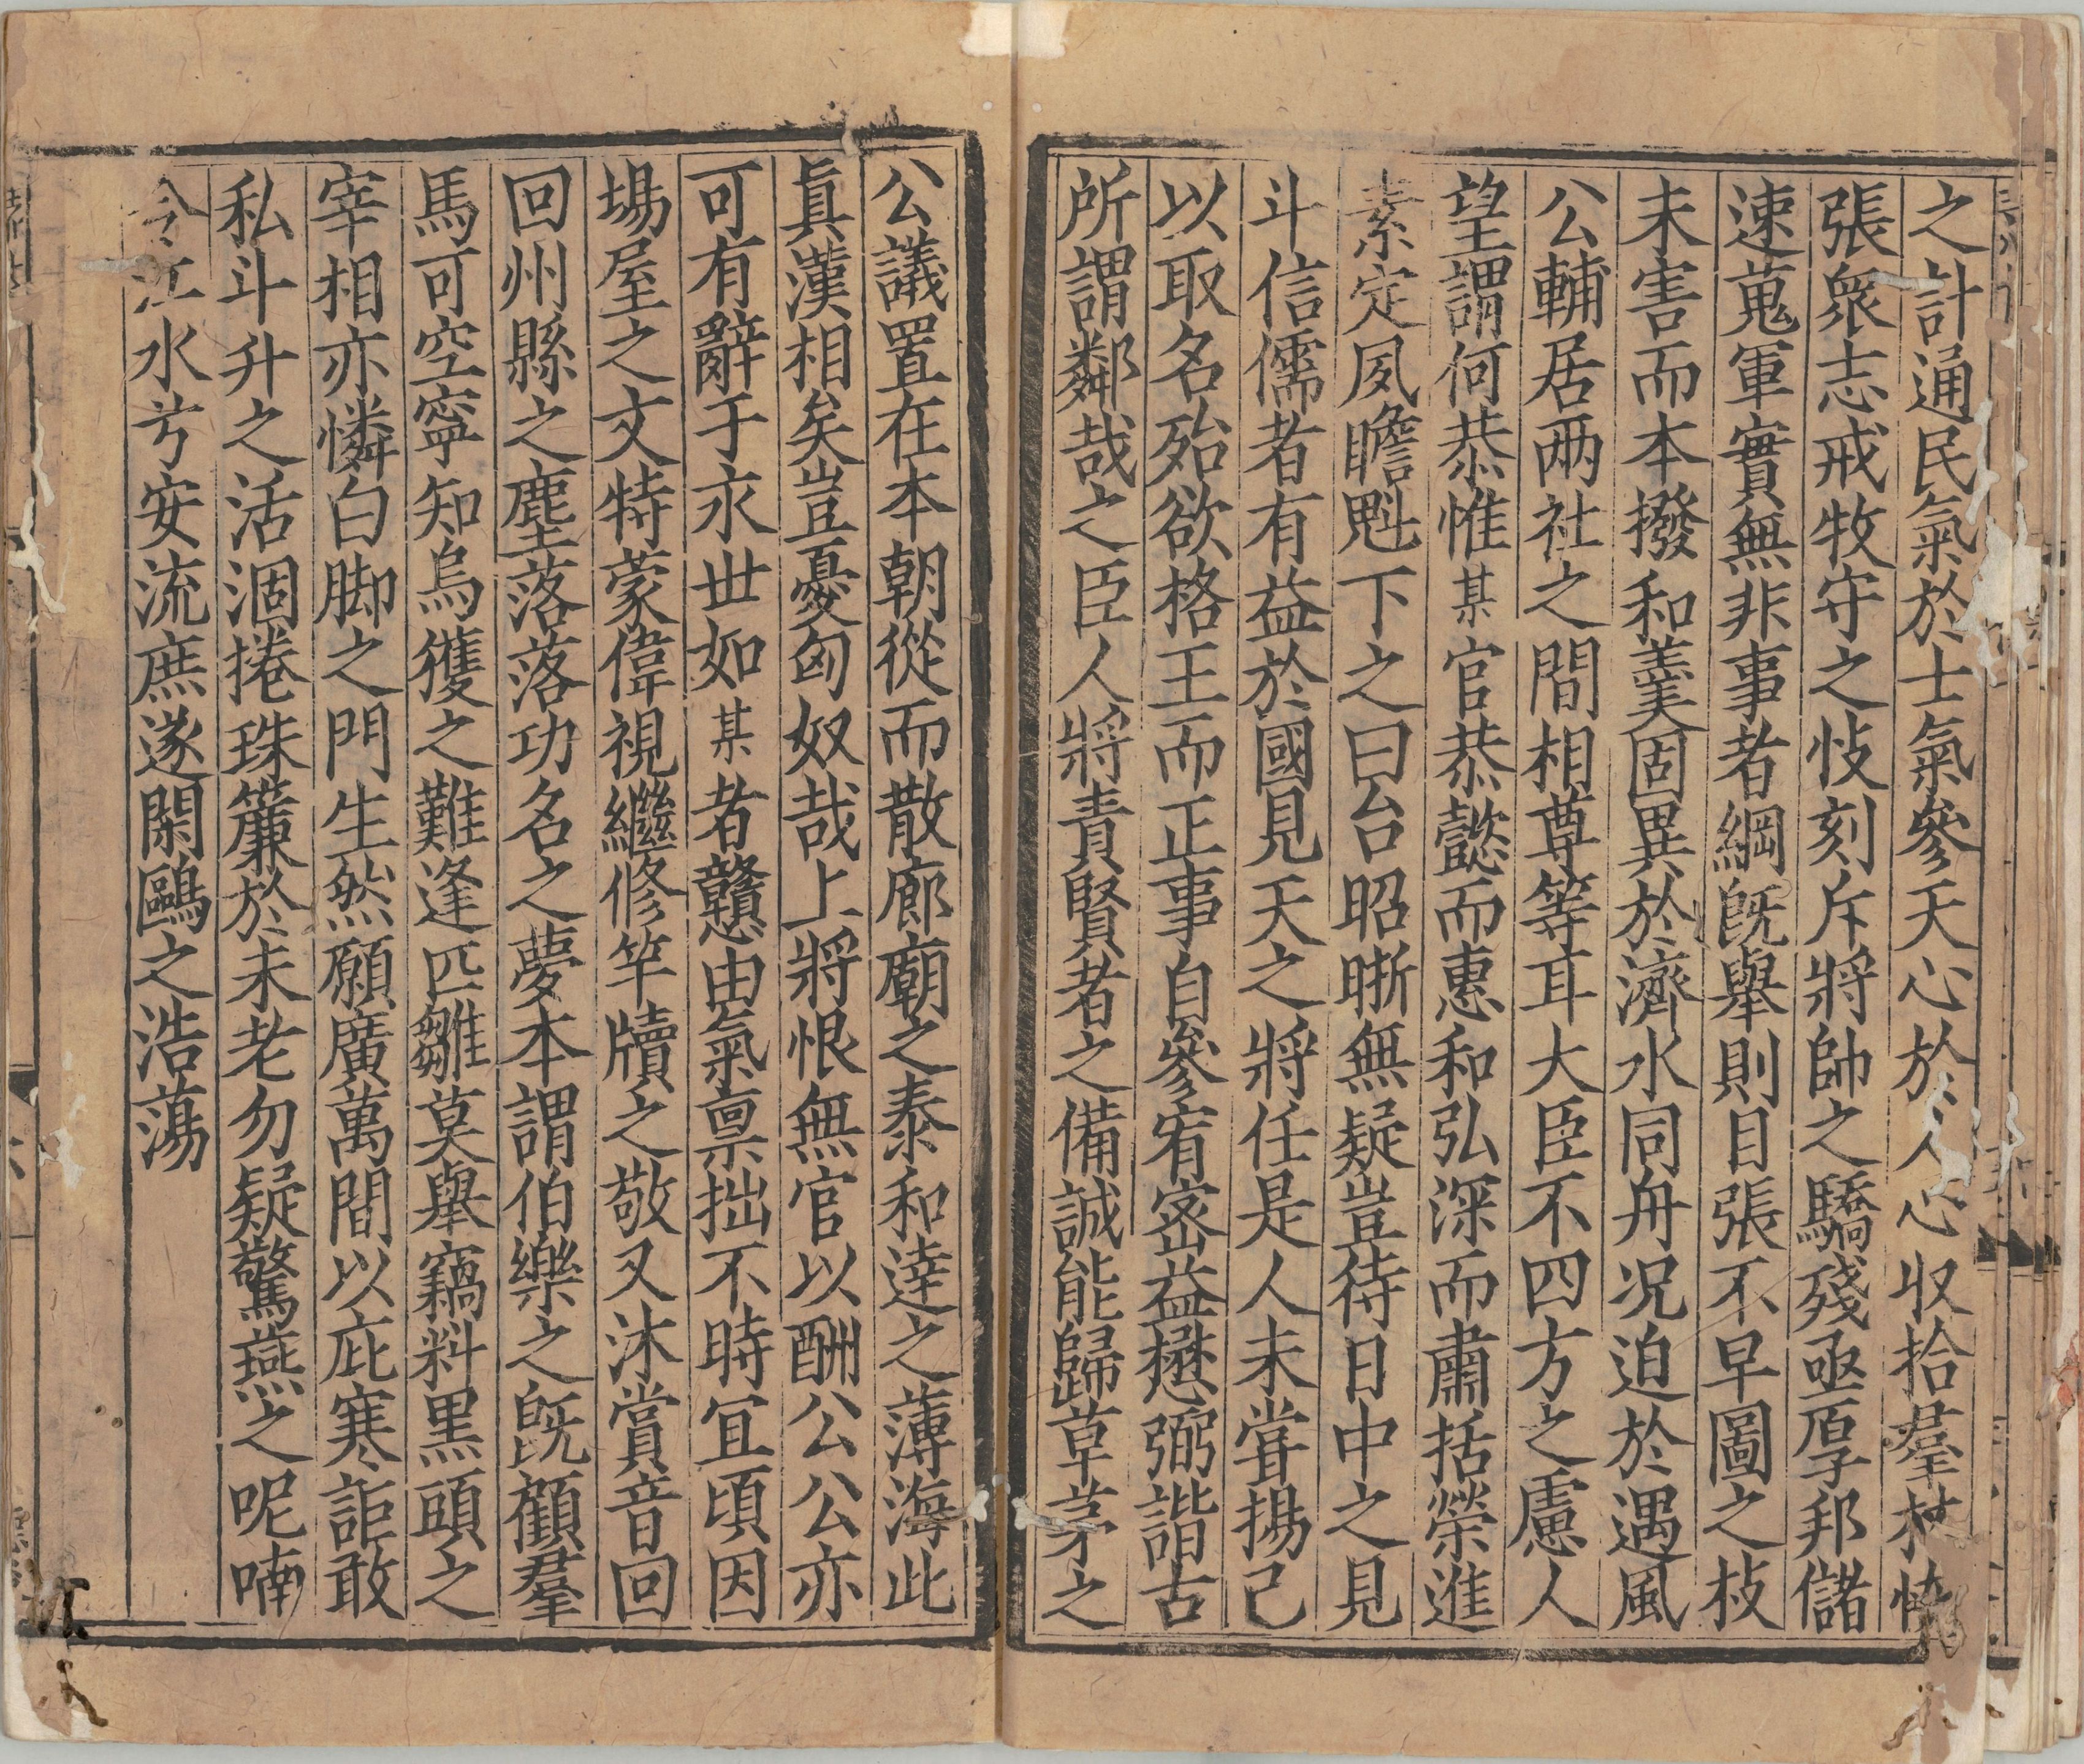 之計通民氣於士氣參天心於人心收拾羣材
張衆志戒牧守之忮刻斥將帥之驕殘亟厚邦儲
速蒐軍實無非事者綱旣舉則目張不早圖之枝
未害而本撥和羹固異於濟水同舟况迫於遇風
公輔居兩社之間相尊等耳大臣不四方之慮人
望謂何恭惟某官恭懿而惠和弘深而肅括榮進
素定夙瞻魁下之曰台昭晣無疑豈待日中之見
斗信儒者有益於國見天之將任是人未甞揚己
以取名殆欲格王而正事自參宥宻益懋弼諧古
所謂鄰哉之臣人將責賢者之備誠能歸草茅之
公議置在本朝從而散廊廟之泰和達之薄海此
眞漢相矣豈憂匈奴哉上將恨無官以酬公公亦
可有辭于永世如某者戇由氣禀拙不時宜頃因
場屋之文特蒙偉視繼修竿牘之敬又沐賞音回
回州縣之塵落落功名之夢本謂伯樂之旣顧羣
馬可空寧知烏獲之難逢匹雛莫舉竊料黒頭之
宰相亦憐白脚之門生然願廣萬間以庇寒詎敢
私斗升之活涸捲珠簾於未老勿疑驚燕之呢喃
令江水兮安流庶遂閑鷗之浩蕩